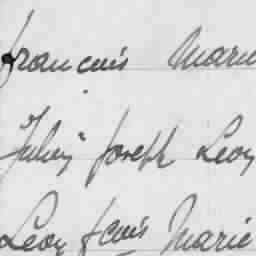 francois Marie
"Jules" Joseph Leon
Léon fcois Marie